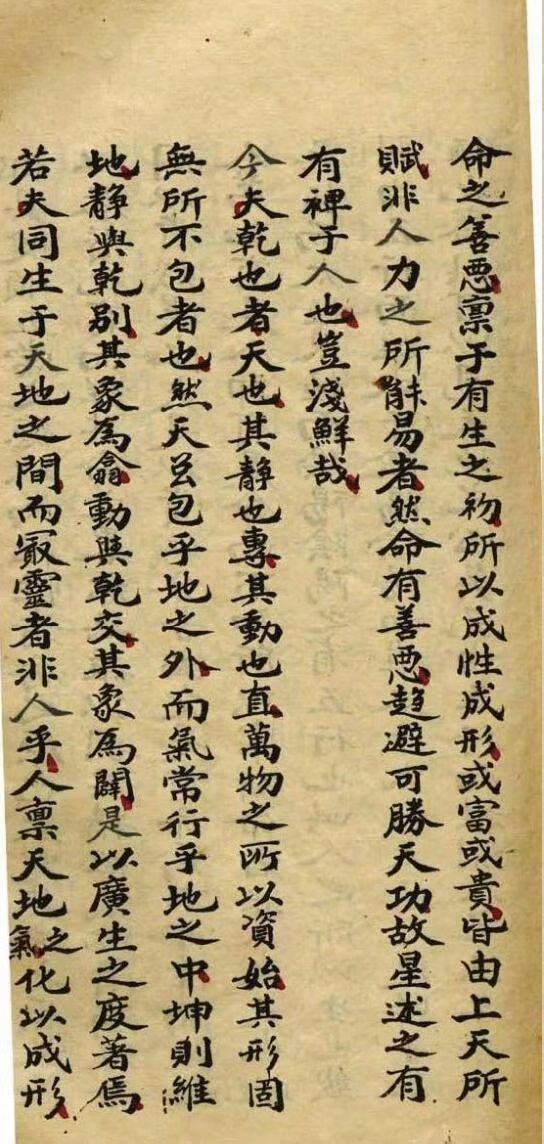 命之善悪禀于有生之初所以成性成形或富或貴皆由上天所
賦非人力之所能易者然命有善悪趋避可勝天功故星述之有
有裨于人也豈淺鮮哉
今夫乾也者天也其静也專其動也直萬物之所以資始其形固
無所不包者也然天兹包乎地之外而氣常行乎地之中坤則維
地静與乾别其象為翕動與乾交其象為闢是以廣生之度著焉
若夫同生于天地之間而最靈者非人乎人禀天地之氣化以成形